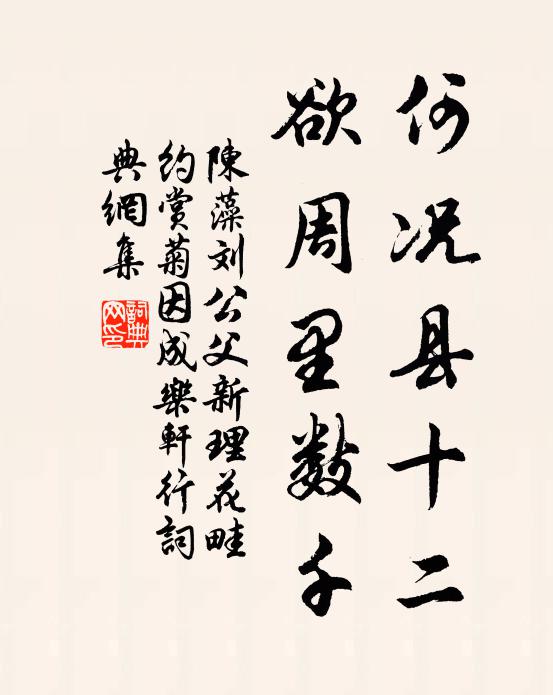 何况县十二
欲周里数千
陳藻刘公父新理花畦
约赏菊因成樂軒行詞
典網集
詞典網印